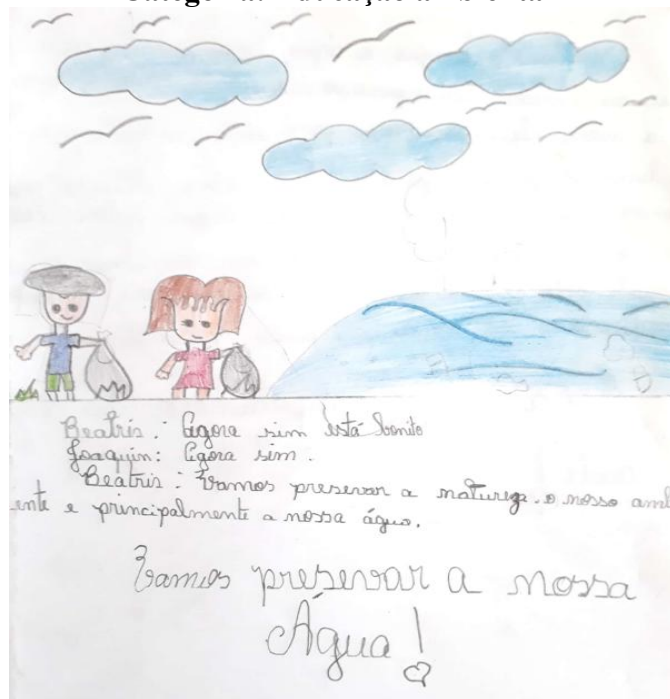 Beatris: Agora sim está bonito
Joaquin: Agora sim.
Beatris: Vamos preservar a natureza. o nosso ambi
ente e principalmente a nossa água.
Vamos preservar a nossa
Água!